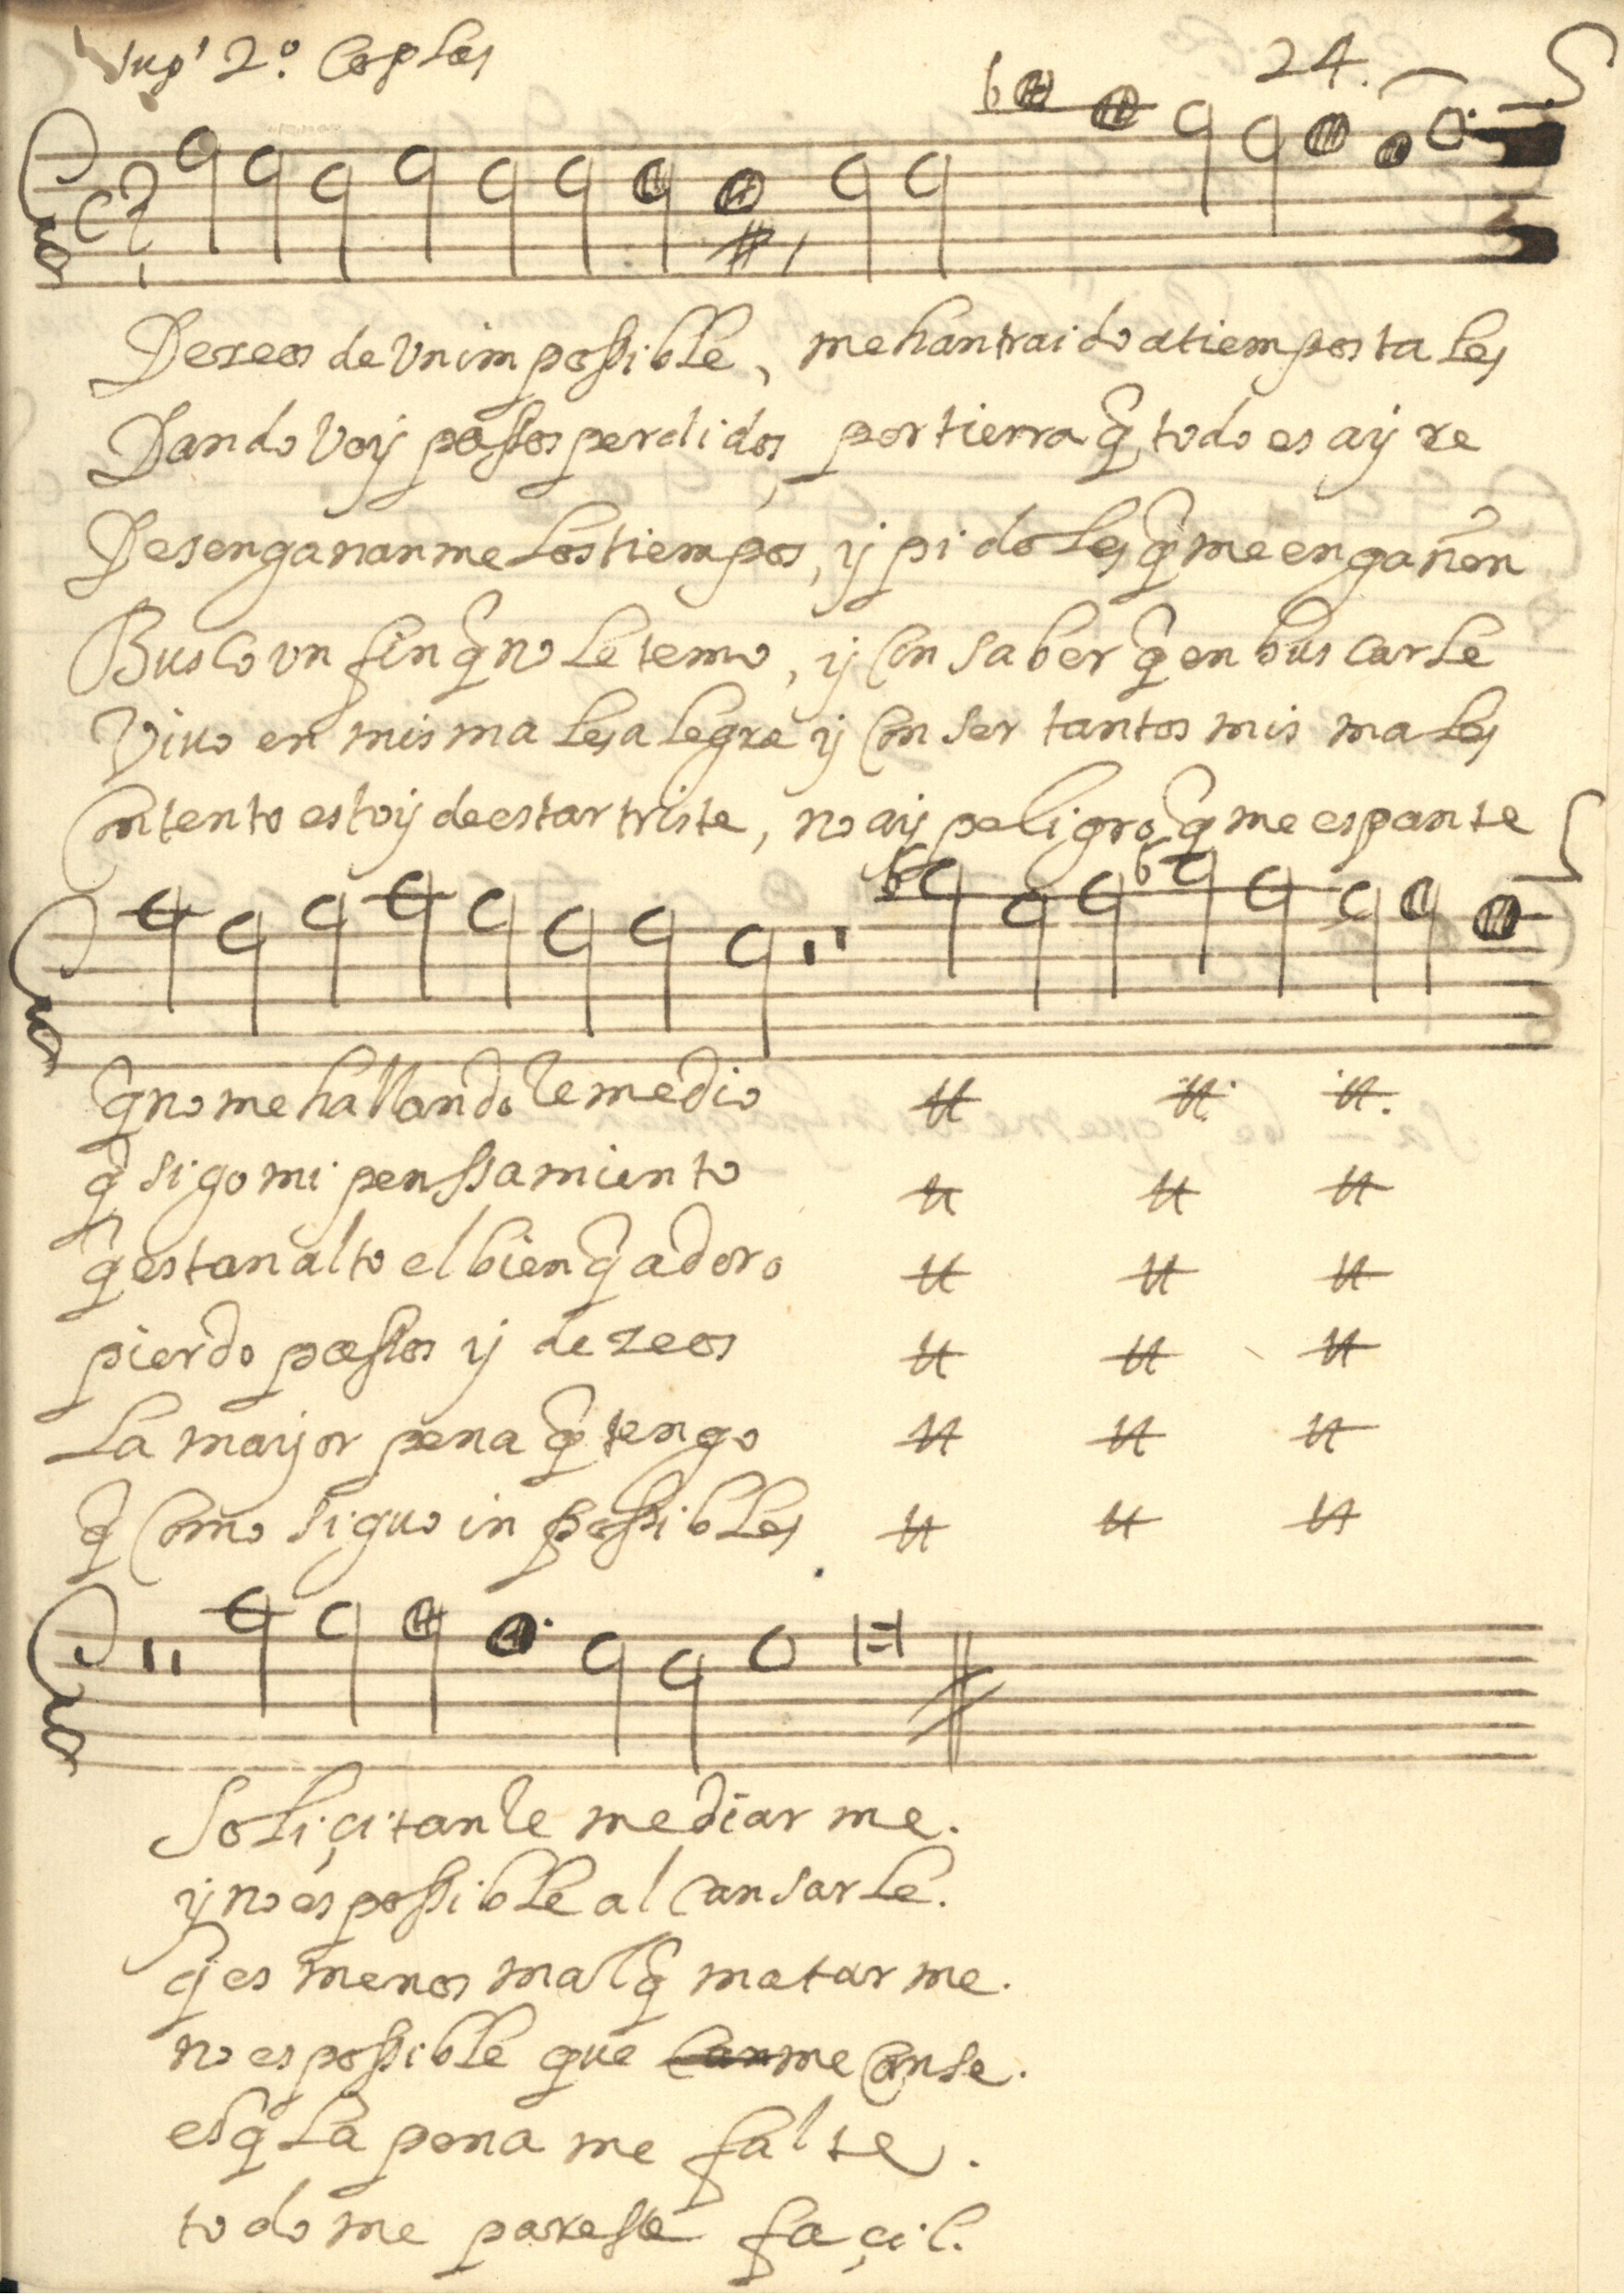 Sup.r 2.º Coplas
24.
Dezeos de Vn impossible, me han traido a tiempos tales
Dando Voy passos perdidos, por tierra q̃ todo es ayre
Desenganan me los tiempos, y pido les q̃ me engañen
Busco vn fin q̃ no le temo, y Con saber q̃ en buscarle
Viuo en mis males alegre y Con ser tantos mis males
Contento estoy de estar triste, no ay peligro q̃ me espante
q̃ no me hallando Remedio
q̃ sigo mi penssamiento
q̃ es tan alto el bien q̃ adoro
pierdo passos y dezeos
La mayor pena q̃ tengo
q̃ Como siguo inpossibles
Soliçitan Remediar me.
y no es possible al Cansarle.
q̃ es menos mal q̃ matar me.
no es possible que Canme Canse.
es q̃ La pena me falte.
todo me paresse façil.